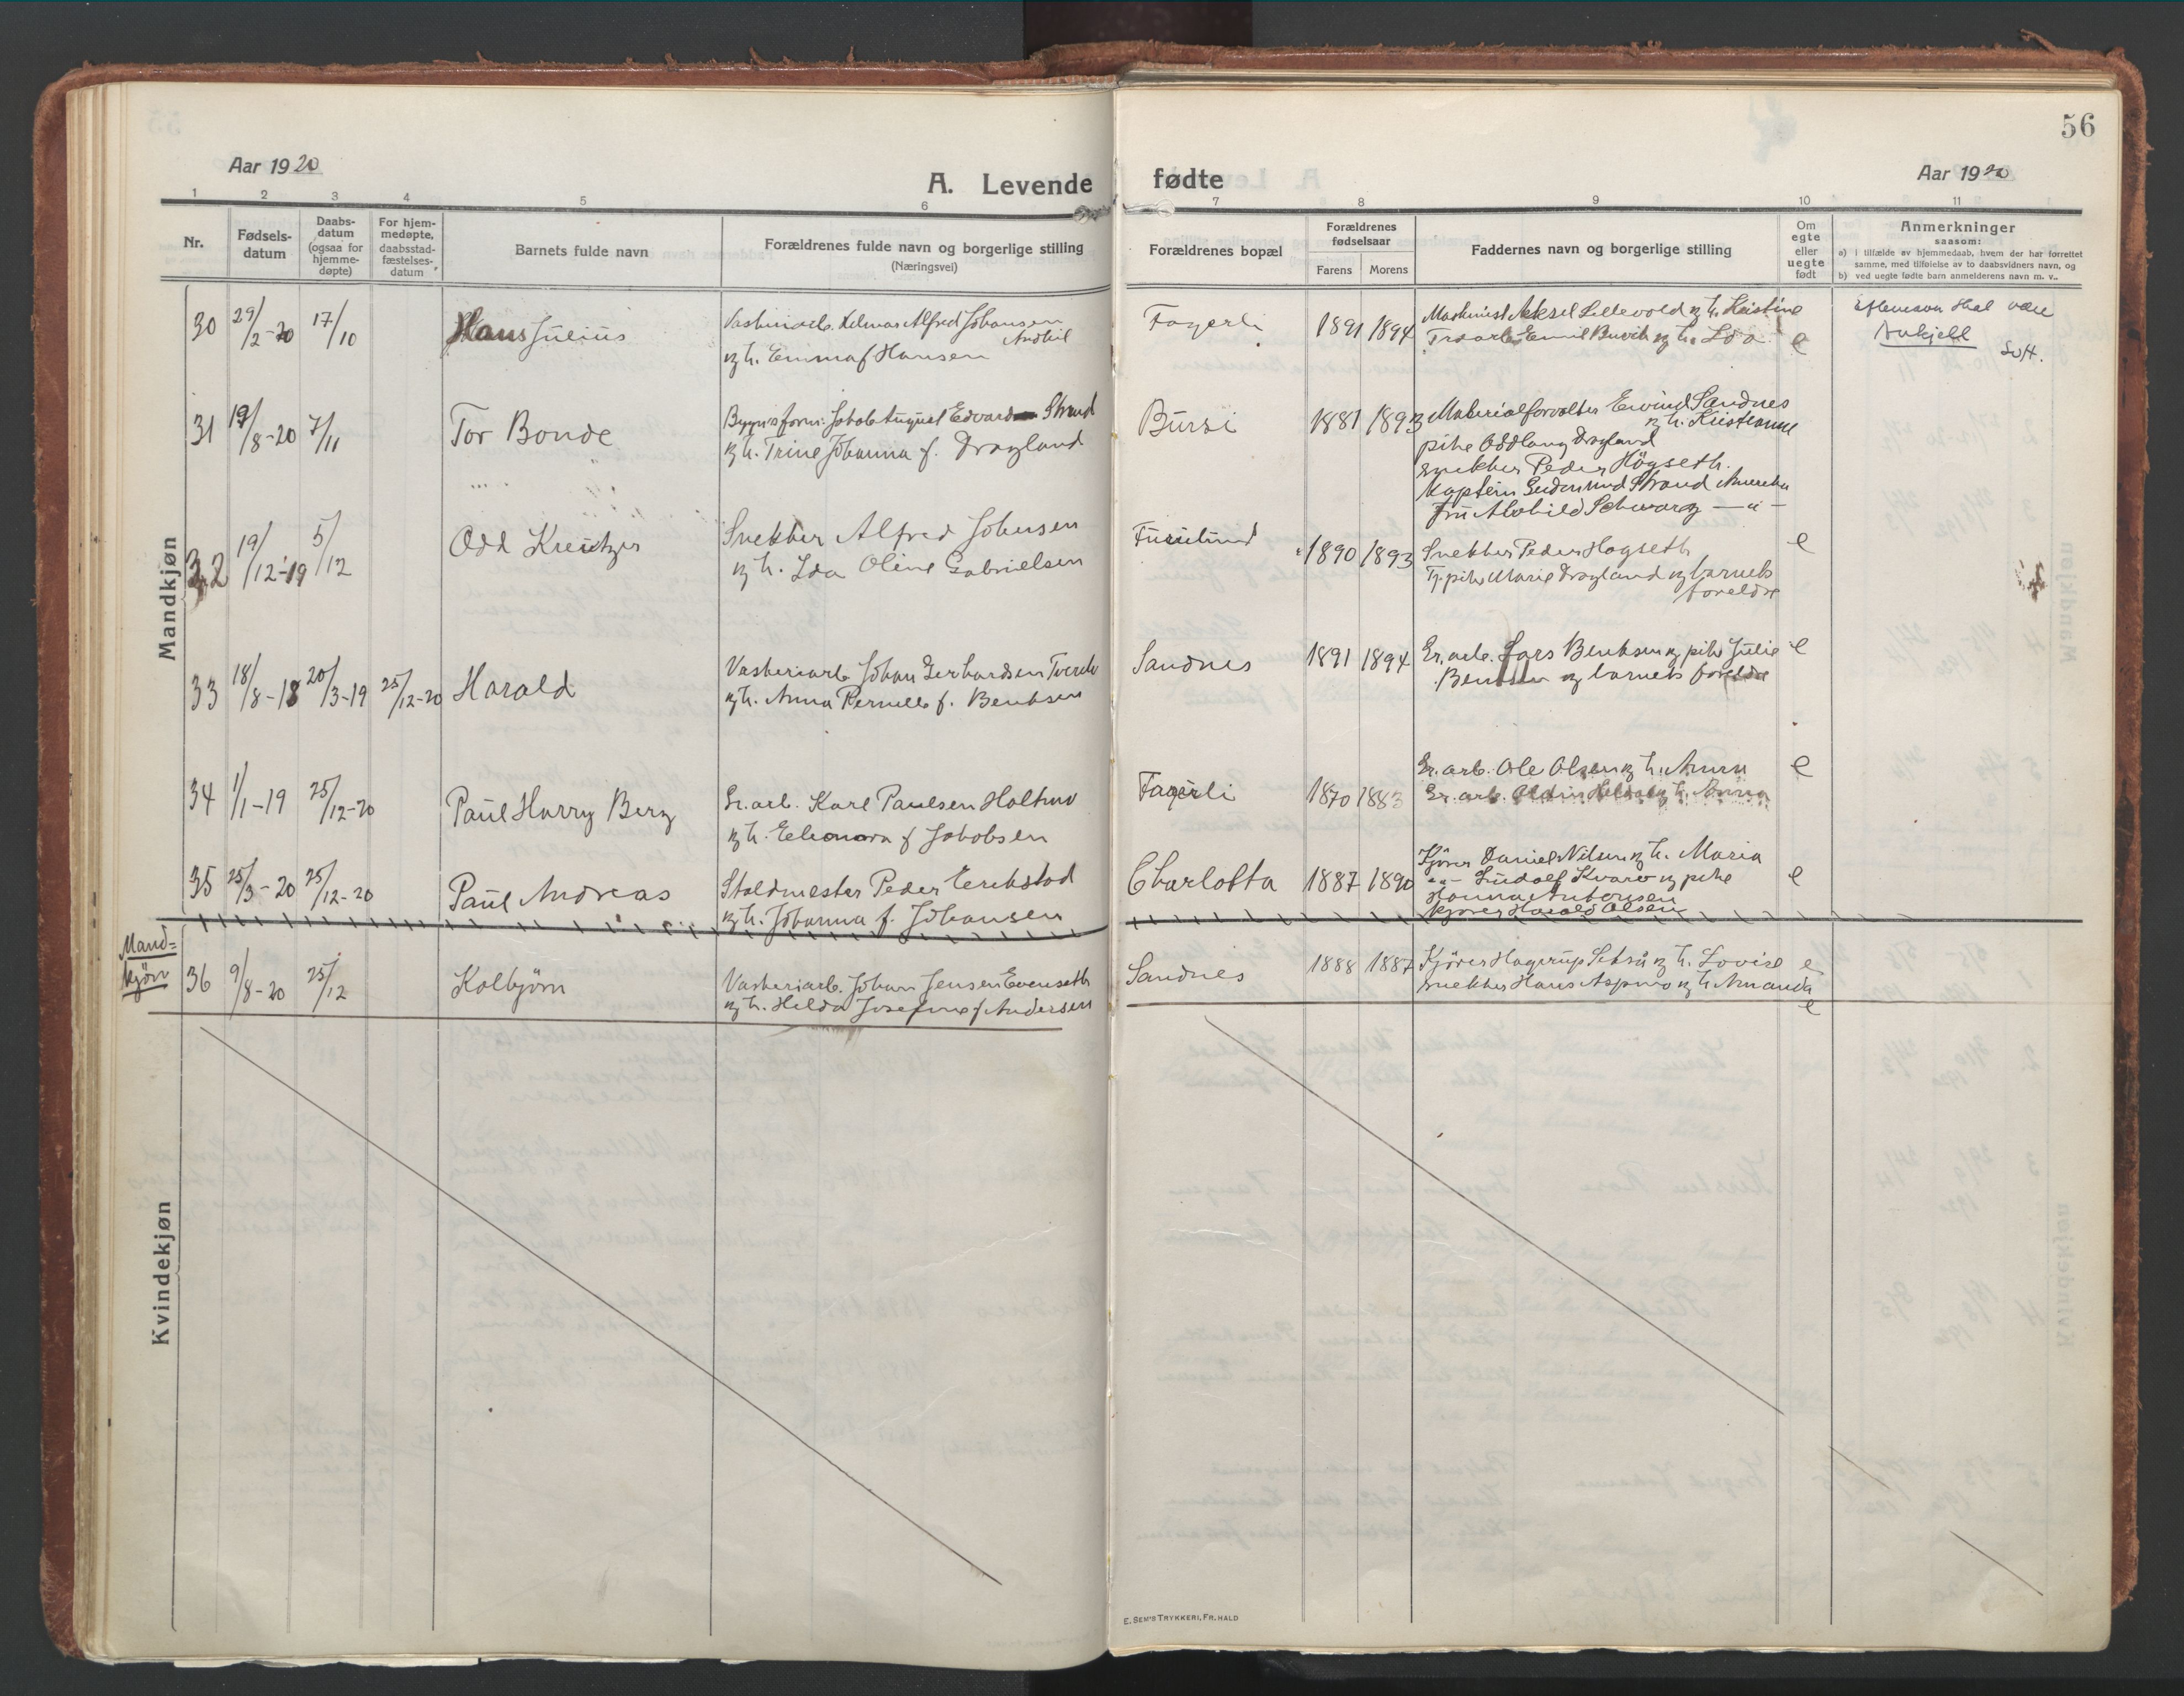 56
Aar 1920
A. Levende
fødte
Aar 1920
1 2 3 4 5 6 7 8 9 10 11
Nr.
Fødsels-
datum
Daabs-
datum
(ogsaa for
hjemme-
døpte)
For hjem-
medøpte,
daabsstad-
fæstelses-
datum
Barnets fulde navn
Forældrenes fulde navn og borgerlige stilling
(Næringsvei)
Forældrenes bopæl
Forældrenes
fødselsaar
Farens Morens
Faddernes navn og borgerlige stilling
Om
egte
eller
uegte
født
Anmerkninger
saasom:
a) i tilfælde av hjemmedaab, hvem der har forrettet
samme, med tilføielse av to daabsvidners navn, og
b) ved uegte fødte barn anmelderens navn m. v..
Mandkjøn
30 29/2-20 17/10 Hans Julius
Vaskeriarb. Hilmar Alfred Johansen
og h. Emma f Hansen
Fagerli 1891 1894
Maskinist Aksel Lillevold og h. Kristine
Emil Buvik og h. Ida e
Efternavn skal være
31 19/8-20 7/11 Tor Bonde
Jakob August Edvard Strand
og h. Trine Johanna f. Dragland
Bursi 1881 1893
Materialforvalter Eivind Sandnes
og h. Kristianne
pike Oddlaug Dragland
snekker Peder Högseth.
Kaptein Gudmund Strand Amerika
Fru Schwarz — " —
32 19/12-19 5/12 Odd Kreutzer
Snekker Alfred Johnsen
og h. Ida Oline Gabrielsen
Furulund 1890 1893
Snekker Peder Hogseth e
Tj. pike Marie Dragland og barnets
foreldre
33 18/8-18 20/3-19 25/12-20 Harald
Vaskeriarb Johan Gerhardsen
og h. Anna Pernelle f. Bentsen
Sandnes 1891 1894
Gr. arb. Lars Bentsen og pike Julie e
Bentsen og barnets foreldre
34 1/1-19 25/12-20 Paul Harry Berg
Gr. arb. Karl Paulsen Holtmo
og h. Eleonora f Jakobsen
Fagerli 1870 1883
Gr. arb. Ole Olsen og h. Anna e
Gr. arb.
35 25/3-20 25/12-20 Paul Andreas
Staldmester Peder Erikstad
og h. Johanna f. Johansen
Charlotta 1887 1890
Kjörer Daniel Nilsen og h. Maria
Ludolf Kvarv og pike e
Hanna Antonsen
kjörer Harald Olsen
Mand=
kjön
36 9/8-20 25/12 Kolbjörn
Vaskeriarb. Johan Jensen Evenseth
og h. Hilda Josefine f Andersen
Sandnes 1888 1887
Kjörer Hagerup Setså og h. Lovise e
snekker Hans Aspmo og h Amanda
e
Kvindekjøn
E. SEM'S TRYKKERI, FR. HALD